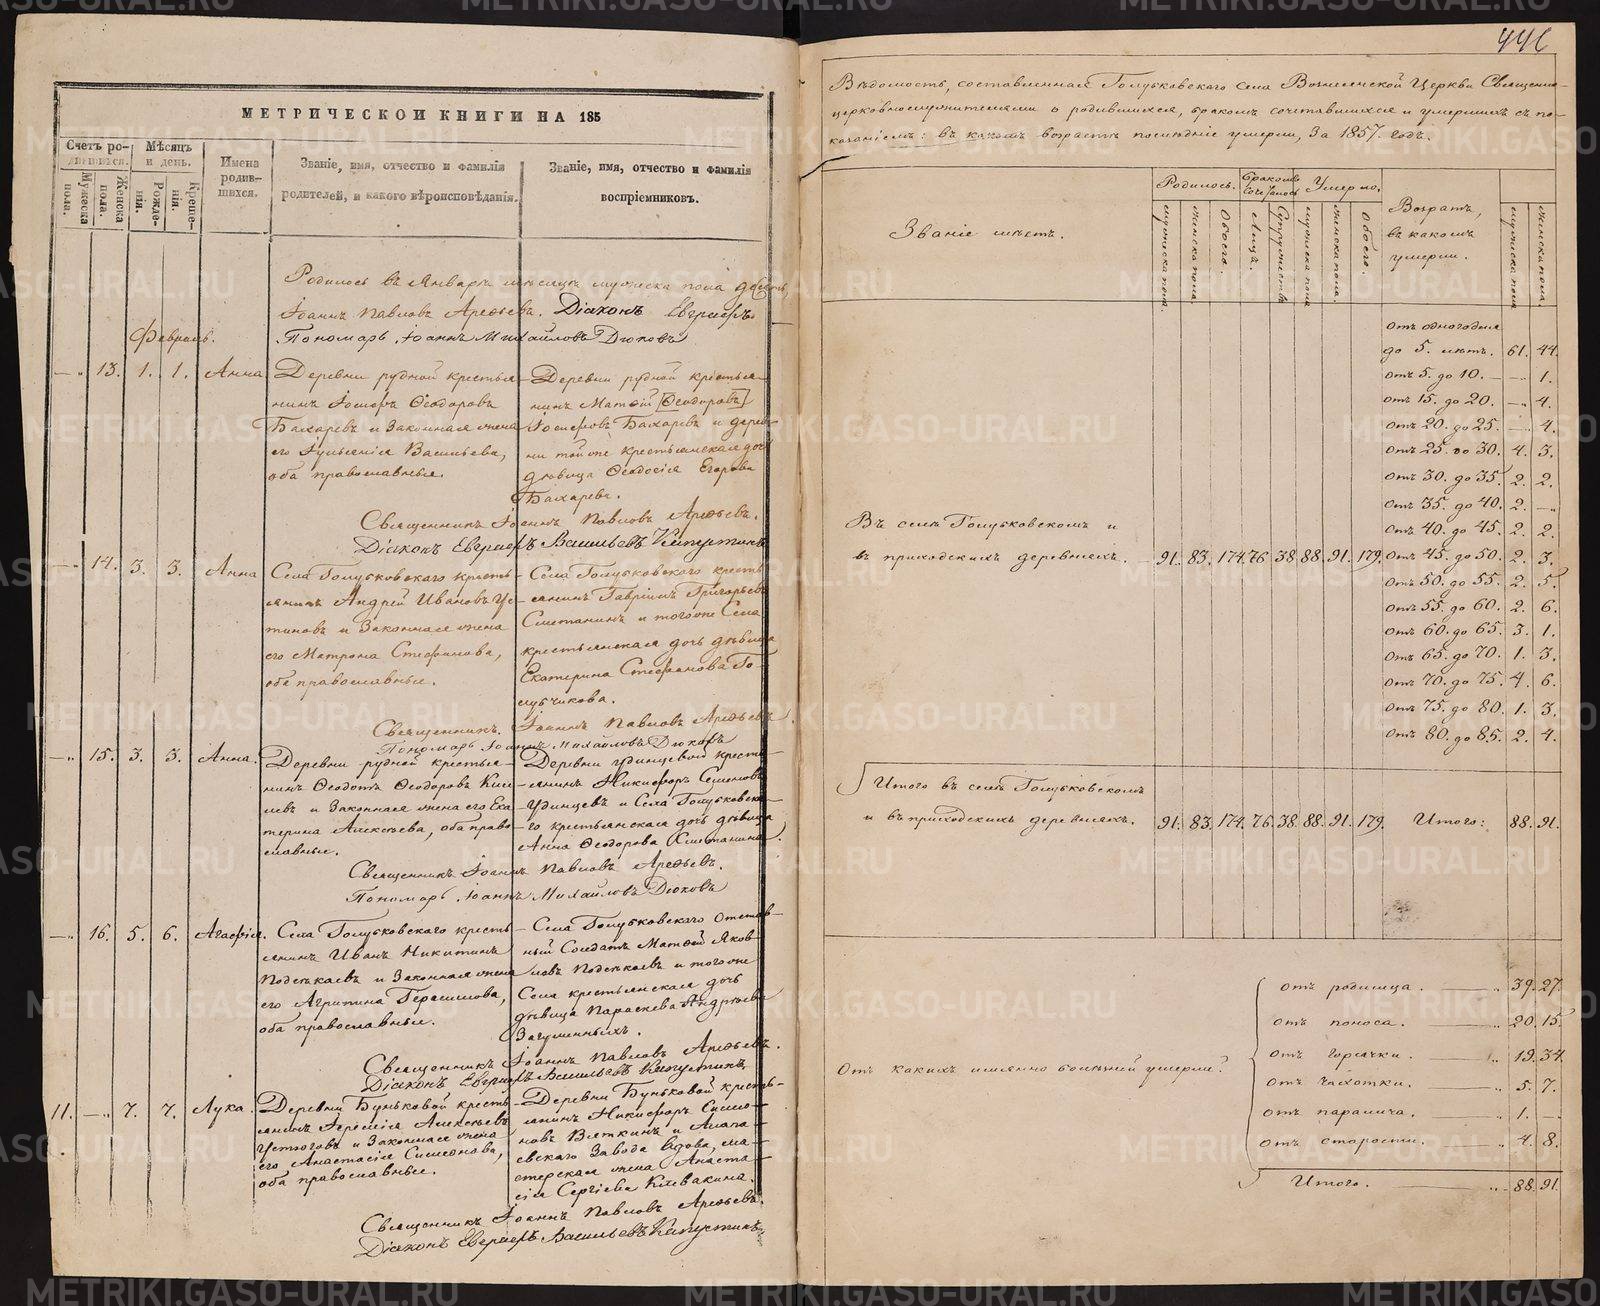 МЕТРИЧЕСКОЙ КНИГИ НА 185
Счетъ родившихся.
Мужеска пола.
Женска пола.
Мѣсяцъ и день.
Рожденія.
Крещенія.
Имена родившихся.
Званіе, имя, отчество и фамилія
родителей, и какого вѣроисповѣданія.
Званіе, имя, отчество и фамилія
воспріемниковъ.
Родилось въ Январѣ мѣсяцѣ мужеска пола
Іоаннъ Павловъ Діаконъ
Февраль.
Пономарь Іоаннъ Михайловъ Дюковъ
13. 1. 1. Анна
Деревни рудной крестья-
нинъ Іосифъ Ѳеодоровъ
Бахаревъ и Законная жена
его Іульянія Васильева,
оба православные.
Деревни рудной крестья-
нинъ Матѳій [Ѳеодоровъ]
Іосифовъ Бахаревъ и дерев-
ни тойже крестьянская дочь
дѣвица Ѳеодосія Егорова
Бахарева.
Священникъ Іоаннъ Павловъ
Діаконъ Васильевъ Капустинъ
14. 3. 3. Анна
Села Голубковскаго кресть-
янинъ Андрей Ивановъ Ус-
тиновъ и Законная жена
его Матрона Стефанова,
оба православные.
Села Голубковскаго кресть-
янинъ Гавріилъ Григорьевъ
Сметанинъ и тогоже Села
крестьянская дочь дѣвица
Екатерина Стефанова Го-
лубчикова.
Священникъ. Іоаннъ Павловъ
Пономарь Іоаннъ Михайловъ Дюковъ
15. 3. 3. Анна.
Деревни рудной крестья-
нинъ Ѳеодотъ Ѳеодоровъ Кисе-
левъ и Законная жена его Ека-
терина Алексѣева, оба право-
славные.
Деревни удинцевой кресть-
янинъ Никифоръ Семеновъ
Удинцевъ и Села Голубковска-
го крестьянская дочь дѣвица
Анна Ѳеодорова Сметанина.
Священникъ Іоаннъ Павловъ
Пономарь Іоаннъ Михайловъ Дюковъ
16. 5. 6. Агафія.
Села Голубковскаго кресть-
янинъ Иванъ Никитинъ
Подсѣкаевъ и Законная жена
его Агрипина Герасимова,
оба православные.
Села Голубковскаго Отстав-
ный Солдатъ Матѳій Яков-
левъ Подсѣкаевъ и тогоже
Села крестьянская дочь
дѣвица Параскева Андреева
Загуменныхъ.
Священникъ Іоаннъ Павловъ
Діаконъ Васильевъ Капустинъ
11. 7. 7. Лука.
Деревни Буньковой кресть-
янинъ Іеремія Алексѣевъ
Устюговъ и Законная жена
его Анастасія Симеонова,
оба православные.
Деревни Буньковой кресть-
янинъ Никифоръ Симео-
новъ Вяткинъ и Алапа-
евскаго Завода вдова, ма-
стерская жена Анаста-
сія Сергіева Клевакина.
Священникъ Іоаннъ Павловъ
Діаконъ Васильевъ Капустинъ
Вѣдомость, составленная Голубковскаго села Вознесенской Церкви Священно-
церковнослужителями о родившихся, бракомъ сочетавшихся и умершихъ съ по-
казаніемъ: въ какомъ возрастѣ послѣдніе умерли, За 1857. годъ.
Званіе мѣстъ.
Родилось.
мужеска пола
женска пола
Обоего.
Бракомъ сочеталось
Лицъ.
Супружествъ
Умерло.
мужеска пола
женска пола.
Обоего.
Возрастъ,
въ какомъ
умерли.
мужеска пола
женска пола.
Отъ одногодня
до 5. лѣтъ. 61. 44.
отъ 5. до 10. 1.
отъ 15. до 20. 4.
отъ 20. до 25. 4.
отъ 25. до 30. 4. 3.
отъ 30. до 35. 2. 2.
отъ 35. до 40. 2.
отъ 40. до 45. 2. 2.
Въ селѣ Голубковскомъ и
въ приходскихъ деревняхъ. 91. 83. 174. 76. 38. 88. 91. 179. отъ 45. до 50. 2. 3.
отъ 50. до 55. 2. 5.
отъ 55. до 60. 2. 6.
отъ 60. до 65. 3. 1.
отъ 65. до 70. 1. 3.
отъ 70. до 75. 4. 6.
отъ 75. до 80. 1. 3.
отъ 80. до 85. 2. 4.
Итого въ селѣ Голубковскомъ
и въ приходскихъ деревняхъ. 91. 83. 174. 76. 38. 88. 91. 179. Итого: 88. 91.
Отъ какихъ имянно болѣзней умерли?
отъ родимца. 39. 27.
отъ поноса. 20. 15.
отъ горячки. 19. 34.
отъ чахотки. 5. 7.
отъ паралича. 1.
отъ старости. 4. 8.
Итого. 88. 91.
METRIKI.GASO-URAL.RU